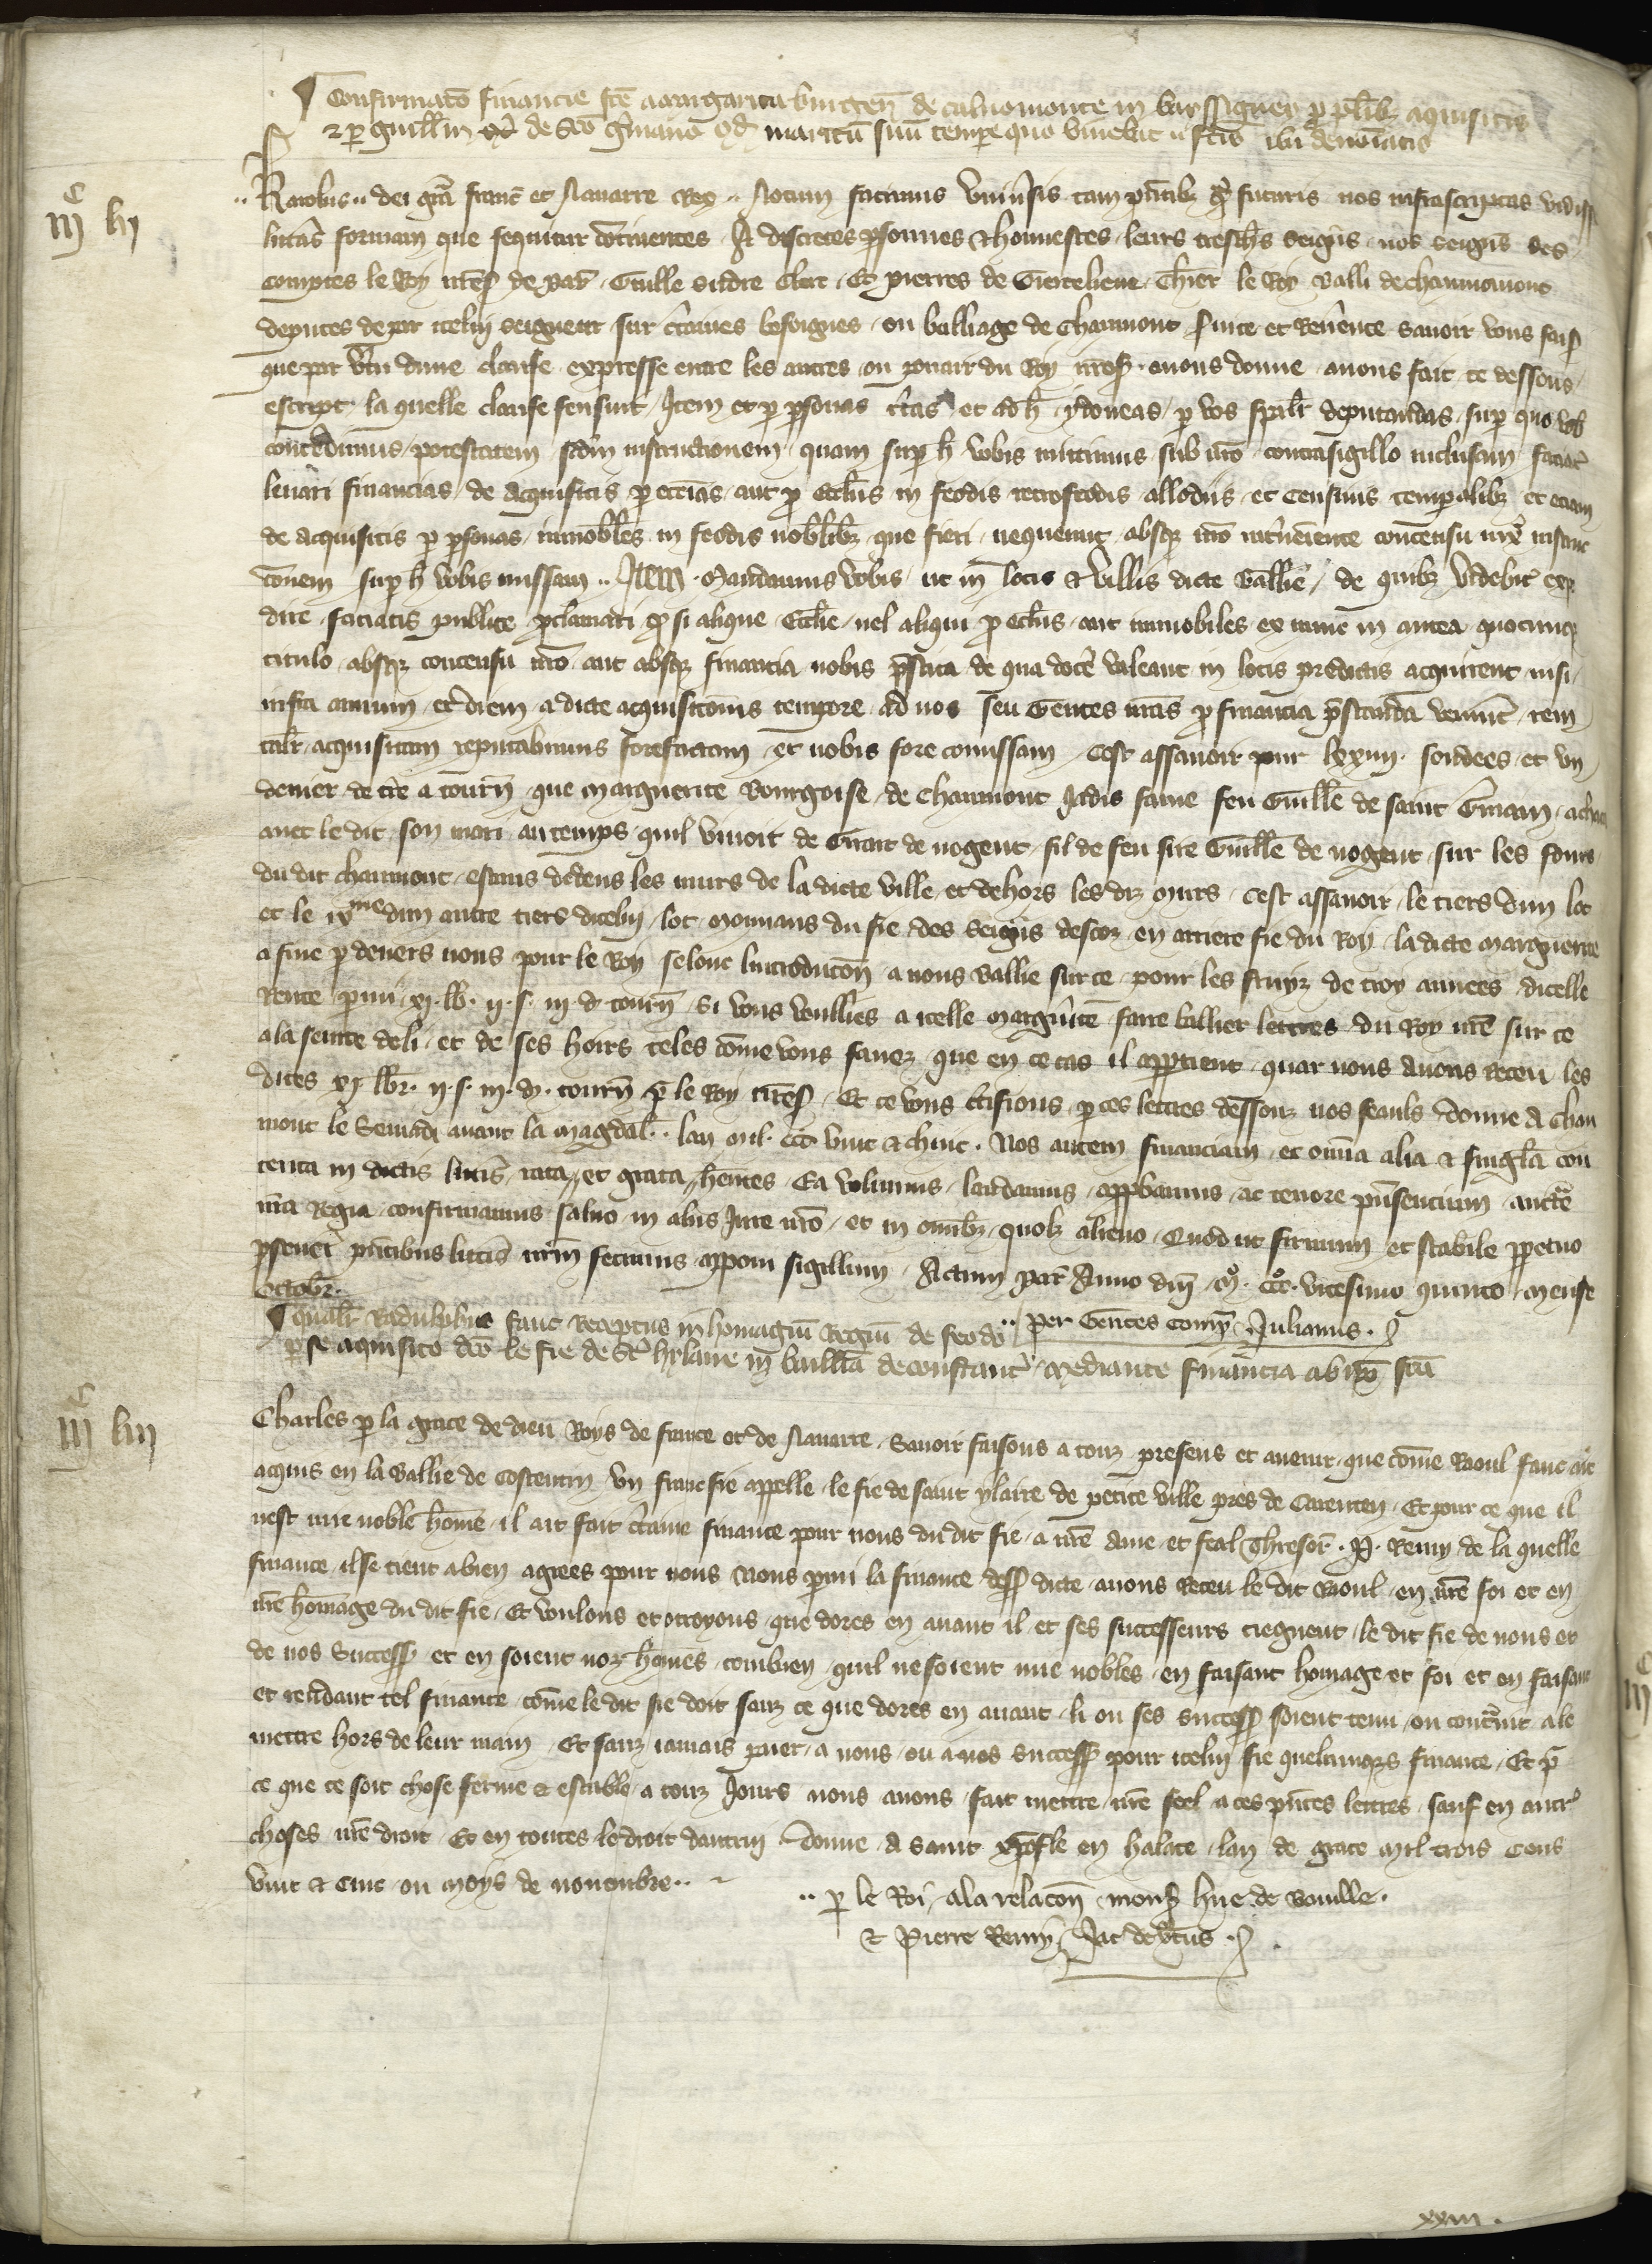 ¶ Confirmatō financie fcē a margarita burgen̄ de caluomonte in bassigney p̱ plib; aquisitis
⁊ p̱ guillm̄ de sc̄o g̃mano q̄d maritū suū tempe quo viuebat
Karolus dei grā franc̄ et Nauarre Rex .. Notum facimus vniu̾sis tam pn̄tib; q̃ futuris nos infrascriptas vidisse
iijᶜ lij
litt̾as formam que sequitur cōtinentes . A discretes p̱sonnes ⁊ honnestes leurs tresch̾s seign̾s nos seign̾s des
comptes le Roy nr̄eſ de par̄ . Guille clerc . Et pierres de chl̾r le Roy Balli de chaumont
deputes de par icelui seigneur sur c̾taines besoignes ou balliage de Chaumont . seruice et Reu̾ence sauoir vous fais
que par v̾tu dune clause expresse entre les autres ou pouair du Roy nr̄eſ . auous donne auons fait ce dessous
escript la quelle clause sensuit . Item et p̱ p̱sonas c̾tas et ad h̄ ydoneas p̱ vos spāl̾r deputandas sup̱ quo vob̄
concedimus potestatem scd̄m instructionem quam sup̱ h̄ vobis mittimus sub nr̄o contrasigillo inclusam faciat̾
leuari financias de acquisitis p̱ ecc̄ias aut p̱ eccl̄is in feodis retrofeodis allodiis et censiuis temp̱alib; et eciam
de acquisitis p̱ p̱sonas innobiles in feodis nobilib; que fieri nequeunt absq; nr̄o int̾ueniente concensu nr̄e instruc
cōnem sup̱ h̄ vobis missam .. Item . Mandamus vobis ut in locis ⁊ villis dicte Ballie de quib; videbit̾ exp̱
dire faciatis publice p̱clamari q̱ si alique eccl̄ie vel aliqui p̱ eccl̄iis aut innobiles ex nunc in antea quocunq;
titulo absq; concensu nr̄o aut absq; financia nobis p̄stita de qua doc̾e valeant in locis predictis acquirent nisi
infra annum et diem a dicte acquisicōnis tempore ad nos seu Gentes nr̄as p̱ financia p̄standa veniūt̾ rem
tal̾r acquisitam reputabimus forefactam et nobis fore comissam . Cest assauoir pour lxxiiij soudees et vn
denier de t̾re a tourn̄ que Marguerite Bourgoise de Chaumont Jadis fame feu Guill̄e de saint G̾main acheta
auec le dit son mari au temps quil viuoit de Girart de nogent fil de feu sire Guill̄e de nogent sur les fours
du dit chaumont estans dedens les murs de la dicte ville et dehors les dız murs . cest assauoir le tiers dun lot
et le ixᵐᵉ dun autre tiers dicelui lot mouuans du fie des seign̾s descoz en arriere fie du Roy . la dicte marguerite
a fine p̱ deuers nous pour le Roy selonc lintroducōn a nous baillie sur ce pour les fruiz de troy annees dicelle
rente p̱mi xj.lb̄. ij.s. iij.d. tourn̄ Si vous veulliés a icelle marg̾uite faire ballier lettres du Roy nr̄e sur ce
a la seurte deli et de ses hoirs teles cōme vous sauez que en ce cas il app̱tient . quar nous auons receu les
dites xj.lb̄r. ij.s. iij.d. tourn̄ p̱ le Roy nr̄eſ . Et ce vous c̾tifions p̱ ces lettres dessouz nos seauls donne a Chau
mont le Semadi auant la magdal̄ . lan mil. ccc. vint ⁊ chinc . Nos autem financiam et om̄ia alia ⁊ singl̄a con
tenta in dictis litt̾is rata et grata hēntes . Ea volumus laudamus app̱bamus ac tenore pn̄sencium auct̄e
nr̄a Regia confirmamus saluo in aliis Jure nr̄o et in omib; quol; alieno . Quod ut firmum et stabile p̱petuo
p̱seueret pn̄tibus litt̾is nr̄m fecimus apponi sigillum . Actum par̄ Anno dn̄i mº. cccº. vicesimo quinto mense
octobr̄.
.. per Gentes comp̱ . Julianus .
¶ qual̾r Radulphus fauc receptus in homagiū Regiū de feodo
p̱ se aquisito dc̄o le fie de st̄ hylaire in bailliā de constanc̄ mediante financia ab ip̄o fc̄a
iijᶜ liij
Charles p̱ la grace de dieu Roys de france et de Nauarre . Sauoir faisons a touz presens et auenir que cōme Raoul fauc ait
acquis en la Ballie de Costentin vn franc fie appelle le fie de saint ylaire de petite ville pres de Carenten . Et pour ce que il
nest mie noble hōme il ait fait c̾taine finance pour nous du dit fie a nr̄e ame et feal Thresor̄ . P. Remy de la quelle
finance il se tient a bien agrees pour nous Nous p̱mi la finance dess̄ dicte auons Receu le dit Raoul en nr̄e foi et en
nr̄e hōmage du dit fie . Et voulons et otroyons que dores en auant il et ses successeurs tiegnent le dit fie de nous et
de nos Success̄ et en soient noz hōmes combien quil ne soient mie nobles en faisant homage et foi et en faisant
et rendant tel finance cōme le dit fie doit sanz ce que dores en auant li ou ses success̄ soient tenu ou contr̄aint a le
mettre hors de leur main . Et sanz iamais paier a nous ou a nos success̄ pour icelui fie quelcunq;s finance . Et p̱
ce que ce soit chose ferme ⁊ estable a touz Jours nous auons fait mettre nr̄e seel a ces pn̄tes lettres sauf en autr̾
choses nr̄e droit . Et en toutes le droit dautrui . Donne a saint xp̄ofle en halate lan de grace mil trois cens
vint ⁊ cinc ou moys de nouembre ..
.. p̱ le Roi a la relacōn monſ hue de bouille .
⁊ Pierre Remy . Jac̄ de v̾tus .
xxiii .